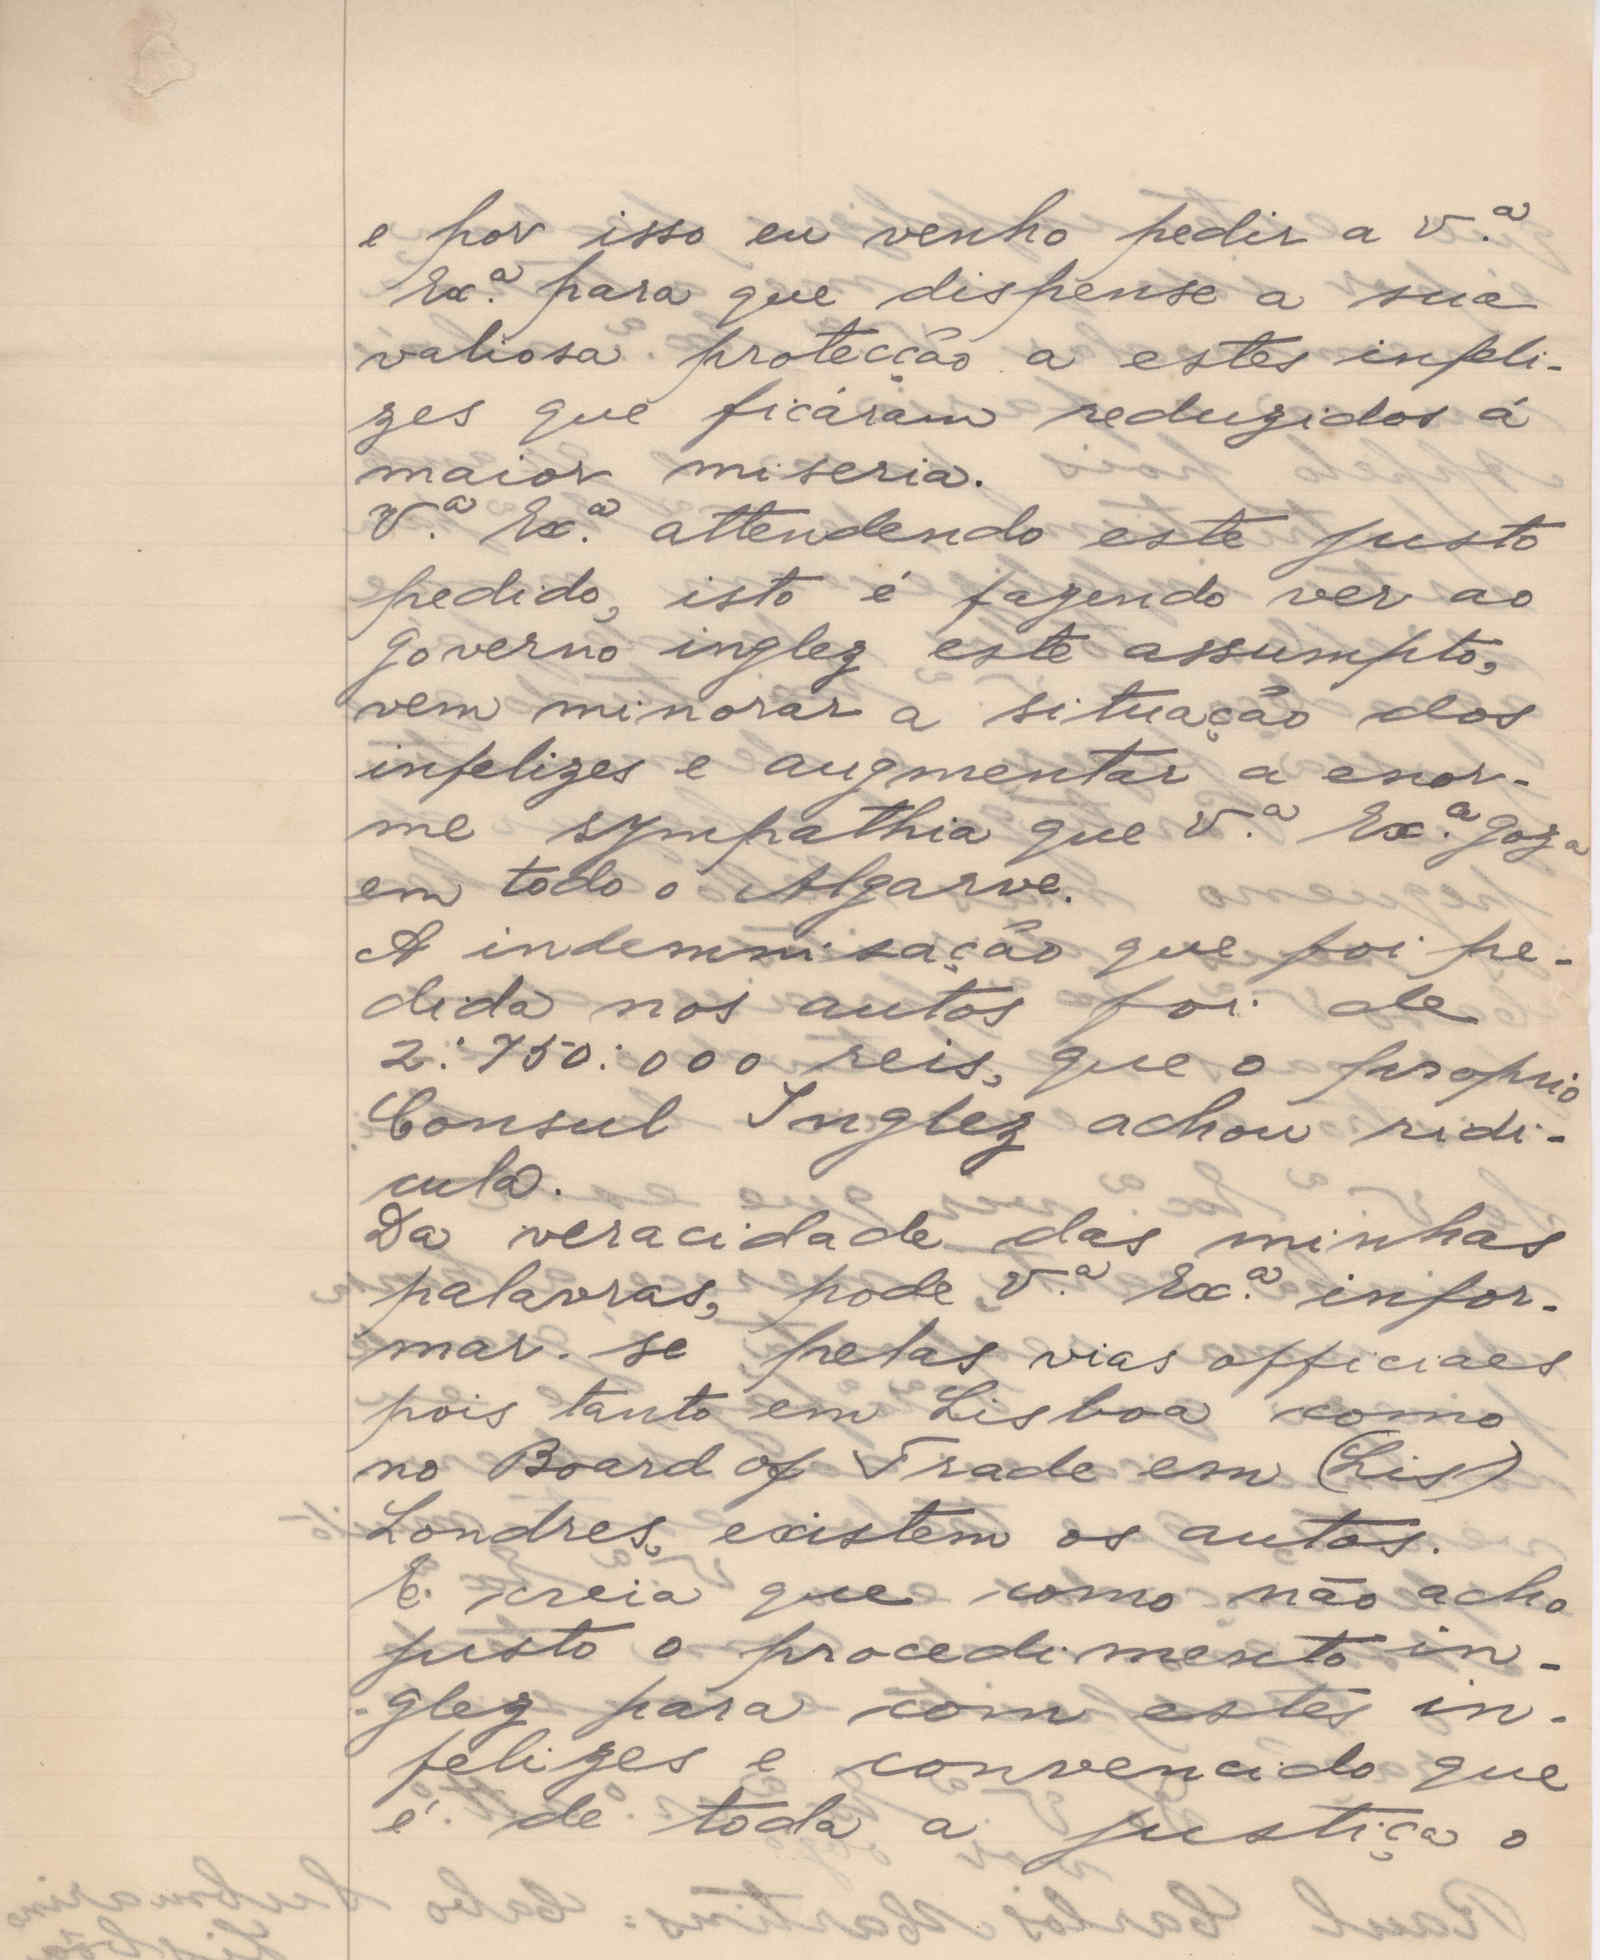 e por isso eu venho pedir a V.ª
Ex.ª para que dispense a sua
valiosa protecção a estes infeli-
zes que ficáram reduzidos á
maior miseria.
V.ª Ex.ª attendendo este justo
pedido, isto é fazendo ver ao
governo inglez este assumpto,
vem minorar a situação dos
infelizes e augmentar a enor-
me sympathia que V.ª Ex.ª goza
em todo o Algarve.
A indemnisação que foi pe-
dida nos autos foi de
2:750:000 reis, que o proprio
Consul Inglez achou ridi-
cula.
Da veracidade das minhas
palavras, pode V.ª Ex.ª infor-
mar-se pelas vias officiaes
pois tanto em Lisboa como
no Board of Trade em (Lis)
Londres, existem os autos.
E creia que como não acho
justo o procedimento in-
-glez para com estes in-
felizes e convencido que
é de toda a justiça o
Raul Carlos Martins = Cabo Submarino